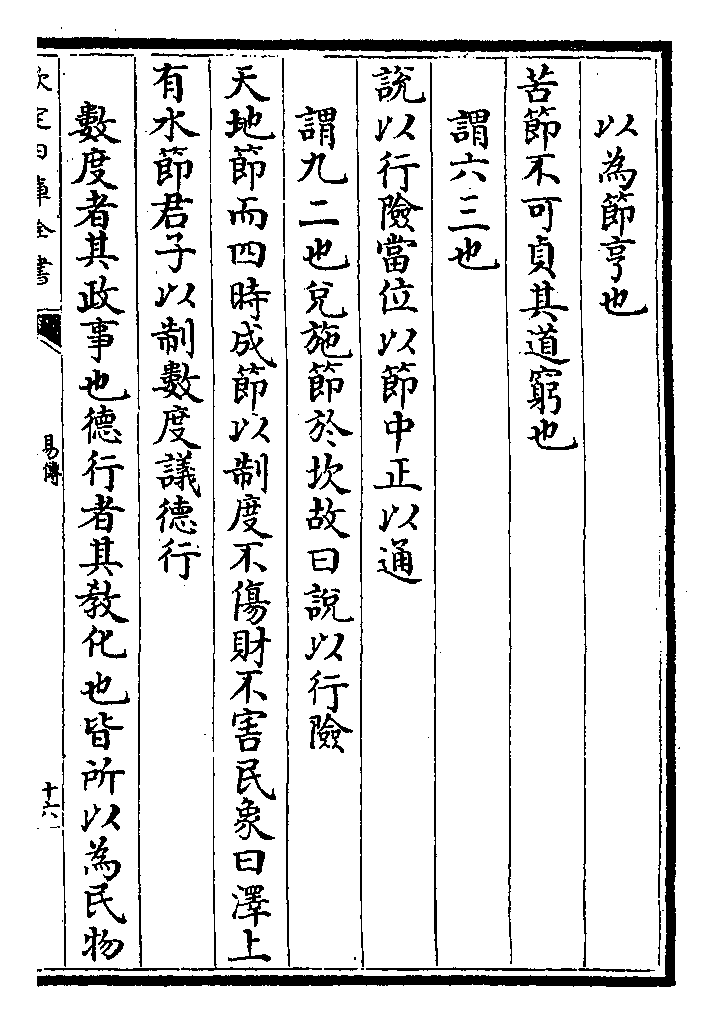 以為節亨也
苦節不可貞其道窮也
謂六三也
說以行險當位以節中正以通
謂九二也兌施節於坎故曰說以行險
天地節而四時成節以制度不傷財不害民象曰澤上
有水節君子以制數度議德行
數度者其政事也德行者其教化也皆所以為民物
欽定四庫全書
易傳
十六